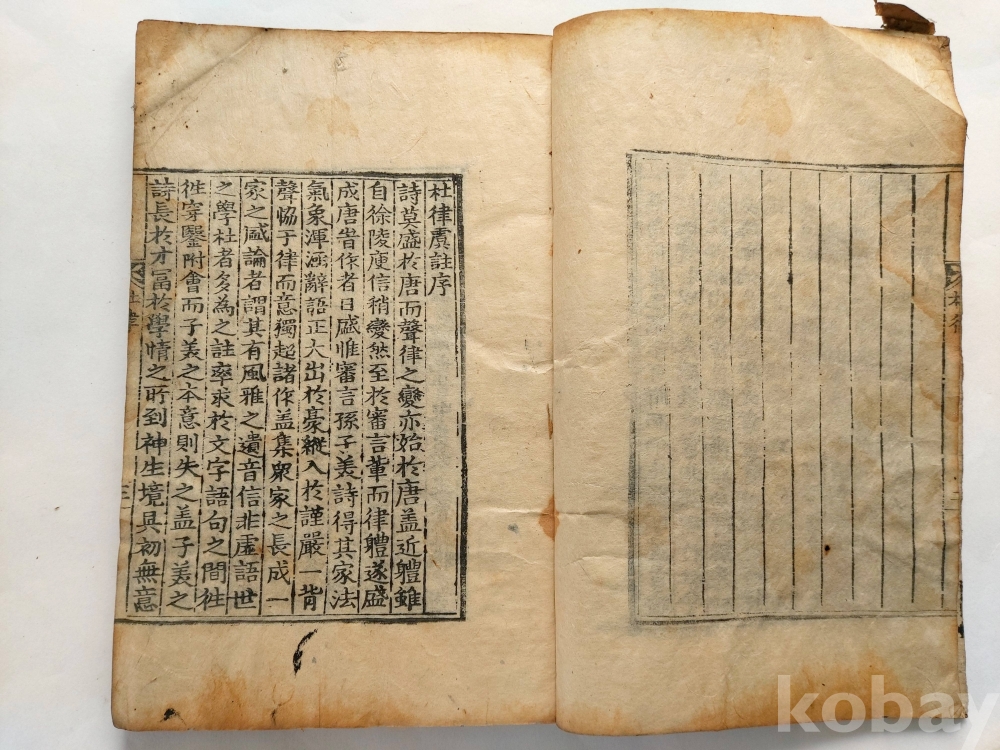 杜律
二
杜律虞註序
詩莫盛於唐而聲律之變亦始於唐盖近軆雖
自徐陵庾信稍變然至於審言軰而律軆遂盛
成唐昔作者日盛惟審言孫子美詩得其家法
氣象渾涵辭語正大出於豪縱入於謹嚴一皆
聲恊于律而意獨超諸作盖集衆家之長成一
家之盛論者謂其有風雅之遺音信非虛語世
之學杜者多為之註率求於文字語句之間徃
徃穿鑿附會而子美之本意則失之盖子美之
詩長於才冨於學情之所到神生境具初無意
杜律
三
kobay